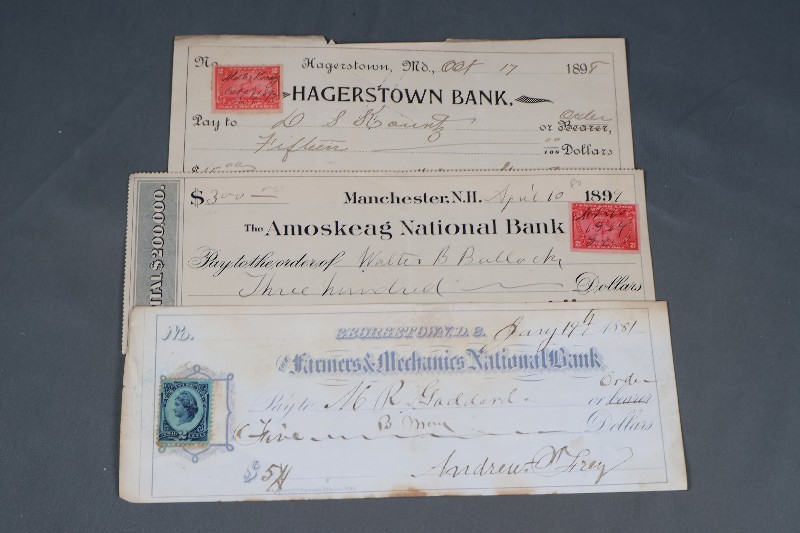 No. Hagerstown, Md., Oct 17 1898
HAGERSTOWN BANK,
Pay to D S Kountz Order or Bearer,
Fifteen 00/100 Dollars
$300 00 Manchester, N.H. April 10 1899
The Amoskeag National Bank
Pay to the order of Walter B Bullock
Three hundred Dollars
$200,000.
No. GEORGETOWN, D.C. Jany 19th 1881
THE Farmers & Mechanics National Bank
Pay to M R Goddard Order or
Five Dollars
2 CENTS
$5